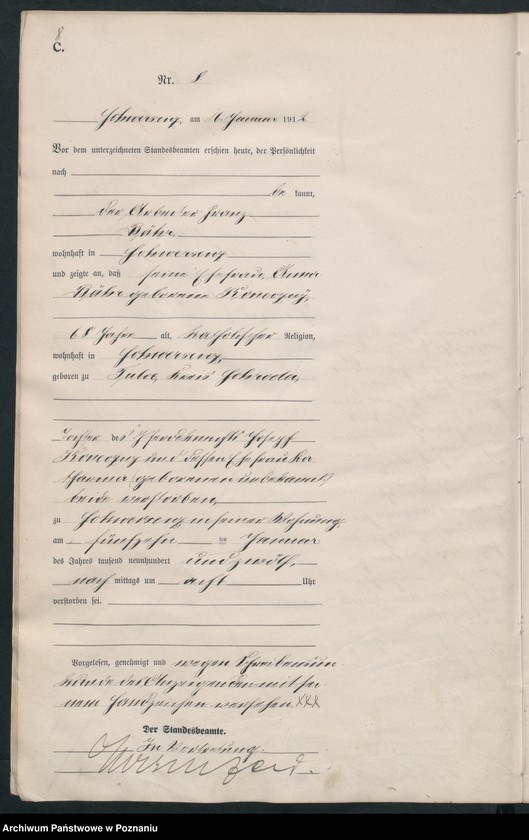 8
C.
Nr. 8
Schwersenz, am 16 Januar 1912
Vor dem unterzeichneten Standesbeamten erschien heute, der Persönlichkeit
nach
be kannt,
der Arbeiter Franz
Bähr
wohnhaft in Schwersenz
und zeigte an, daß seine Ehefrau Anna
Bähr geborene Koneczny,
68 Jahre alt, katholischer Religion,
wohnhaft in Schwersenz,
geboren zu Tulce, Kreis Schroda,
Tochter des Pferdeknechts Joseph
Koneczny und dessen Ehefrau Ka
tharina (geborenen unbekannt)
beide verstorben,
zu Schwersenz in seiner Wohnung,
am fünfzehn ten Januar
des Jahres tausend neunhundert und zwölf,
nach mittags um acht Uhr
verstorben sei.
Vorgelesen, genehmigt und wegen Schreibensun
kunde des Anzeigenden mit sei
nem Handzeichen versehen. XXX
Der Standesbeamte.
In Vertretung.
Archiwum Państwowe w Poznaniu